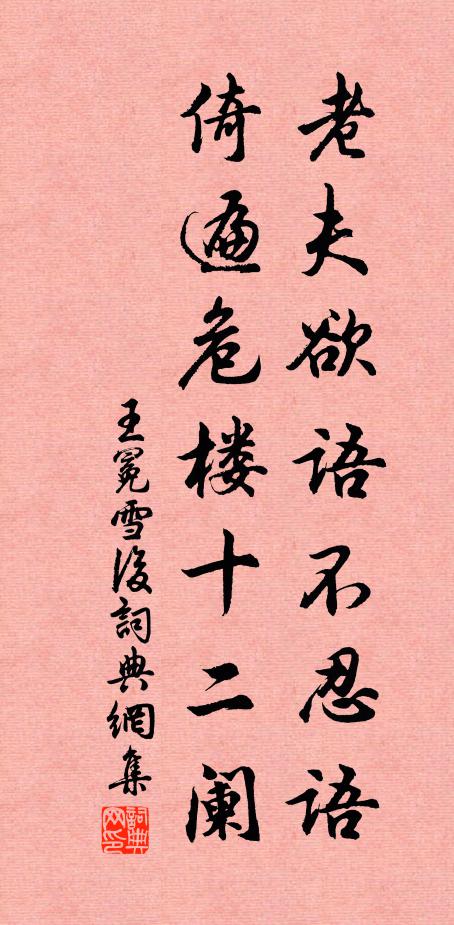 老夫欲语不忍语
倚遍危楼十二阑
王冕雪後詞典網集
詞典网印